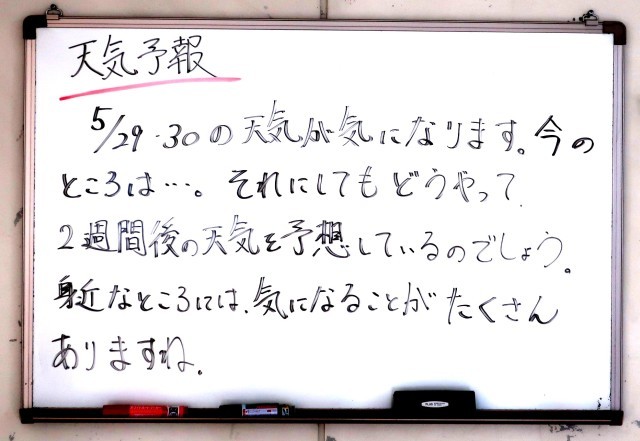 天気予報
5/29・30の天気が気になります。今の
ところは…。それにしてもどうやって
2週間後の天気を予想しているのでしょう。
身近なところには、気になることがたくさん
ありますね。